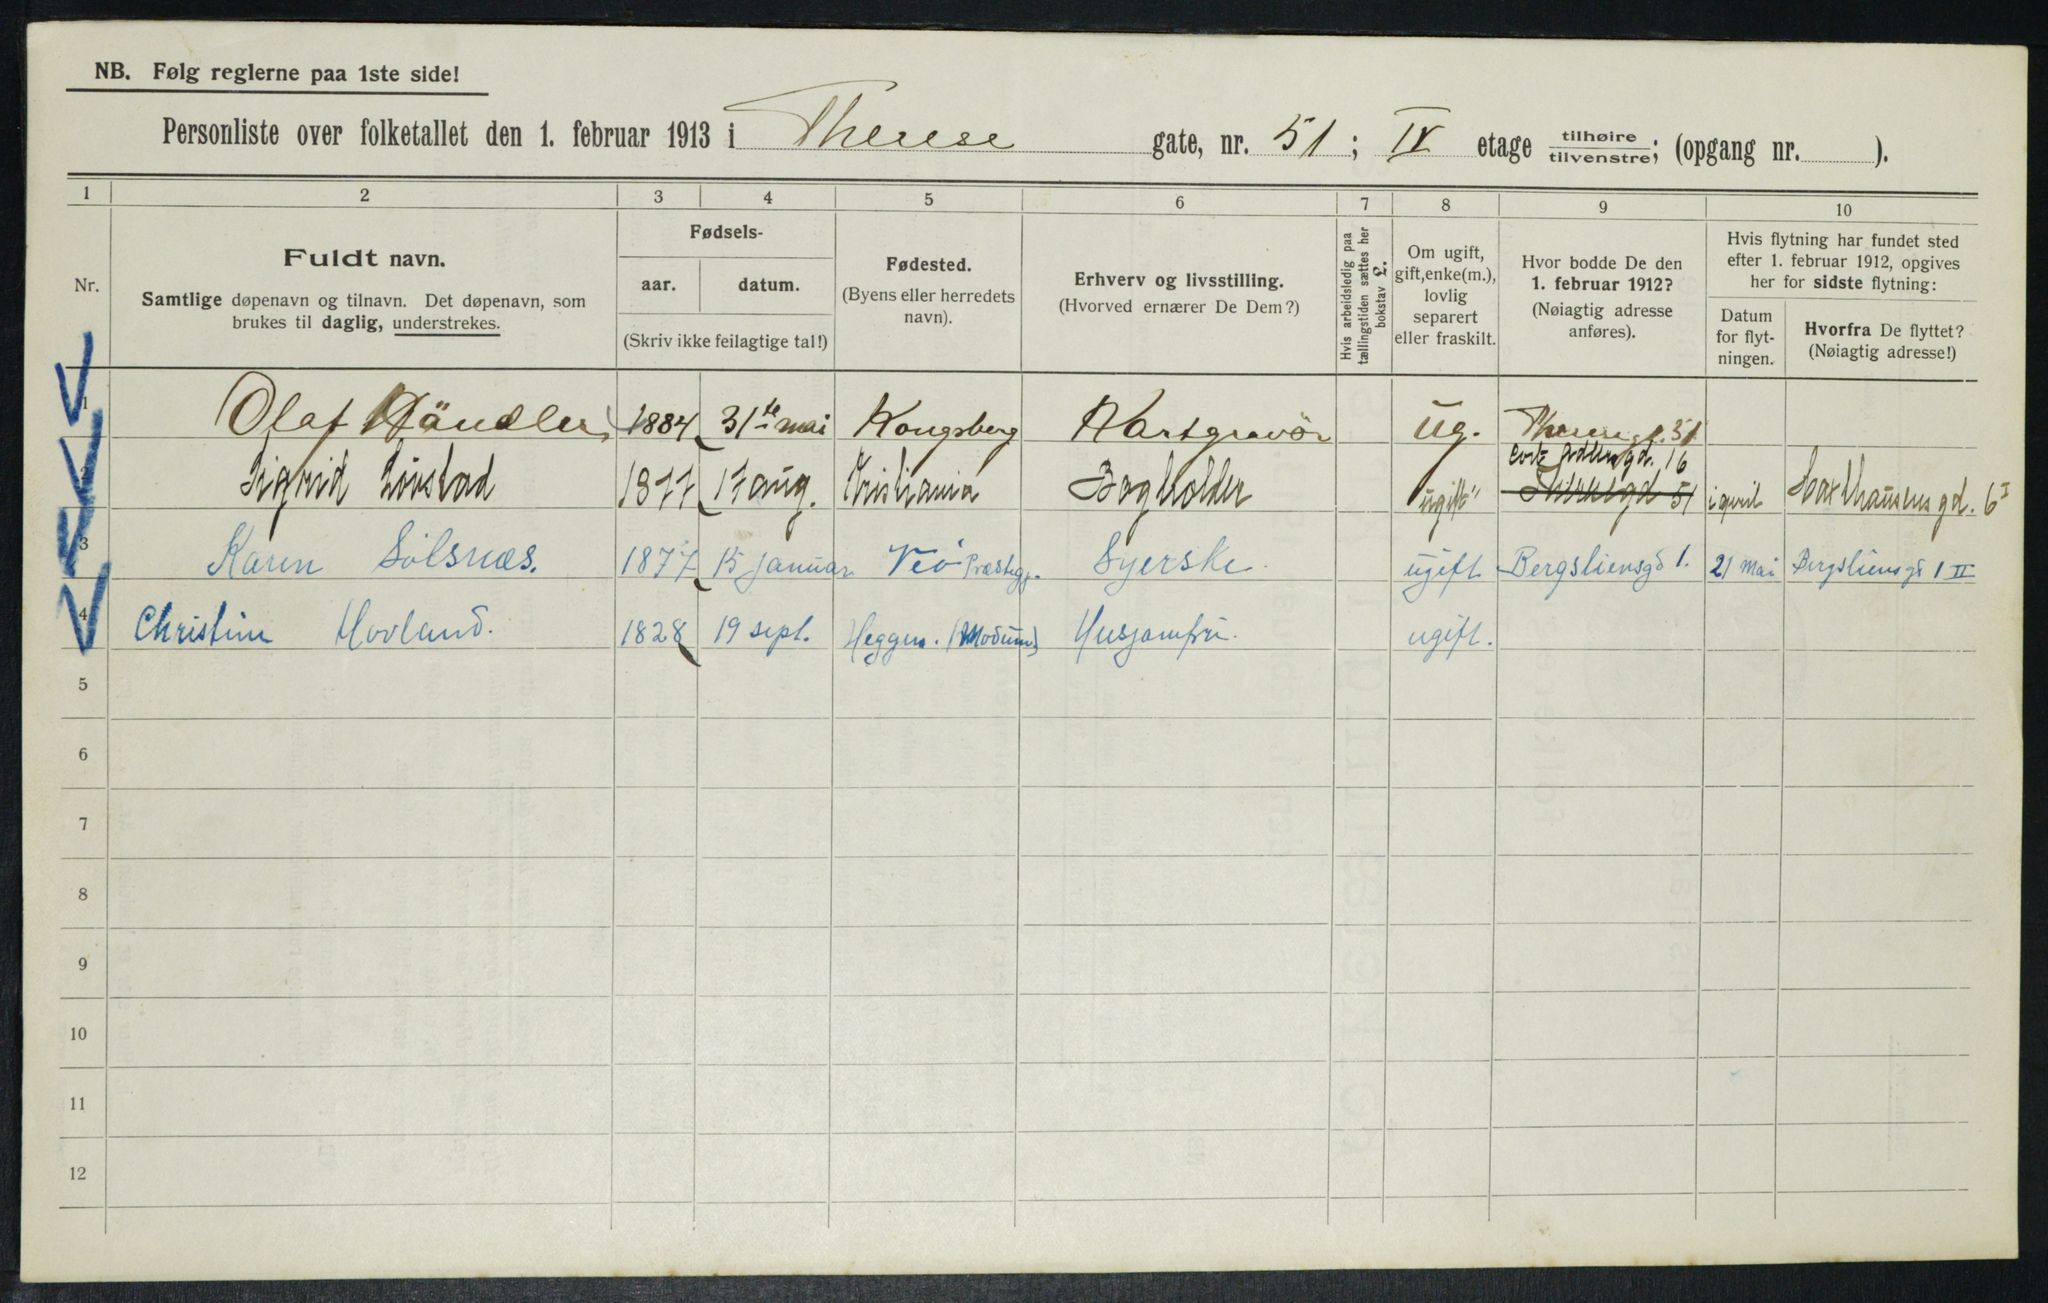 NB. Følg reglerne paa 1ste side!
Personliste over folketallet den 1. februar 1913 i Therese gate, nr. 51; IV etage tilhøire tilvenstre; (opgang nr. ).
1 2 3 4 5 6 7 8 9 10
Nr.
Fuldt navn.
Samtlige døpenavn og tilnavn. Det døpenavn, som
brukes til daglig, understrekes.
Fødsels-
aar. datum.
(Skriv ikke feilagtige tal!)
Fødested.
(Byens eller herredets
navn).
Erhverv og livsstilling.
(Hvorved ernærer De Dem?)
Hvis arbeidsledig paa
tællingstiden sættes her
bokstav £.
Om ugift,
gift, enke(m.),
lovlig
separert
eller fraskilt.
Hvor bodde De den
1. februar 1912?
(Nøiagtig adresse
anføres).
Hvis flytning har fundet sted
efter 1. februar 1912, opgives
her for sidste flytning:
Datum
for flyt-
ningen.
Hvorfra De flyttet?
(Nøiagtig adresse!)
1 Olaf Händler 1884 31te mai Kongsberg Kartgravör ug. Theresegt. 51
Cort Adlersgd. 16
2 Sigrid Lövstad 1877 17 aug. Kristiania Bogholder ugift Theresegd 51 i april Harthausensgd. 6 I
3 Karen Sölsnæs. 1877 15 januar Veö Præstegj. Syerske ugift Bergsliensgd 1. 21 mai Bergsliensgd 1 II
4 Christine Hovland. 1828 19 sept. Heggen. (Modum) Husjomfru. ugift.
5
6
7
8
9
10
11
12